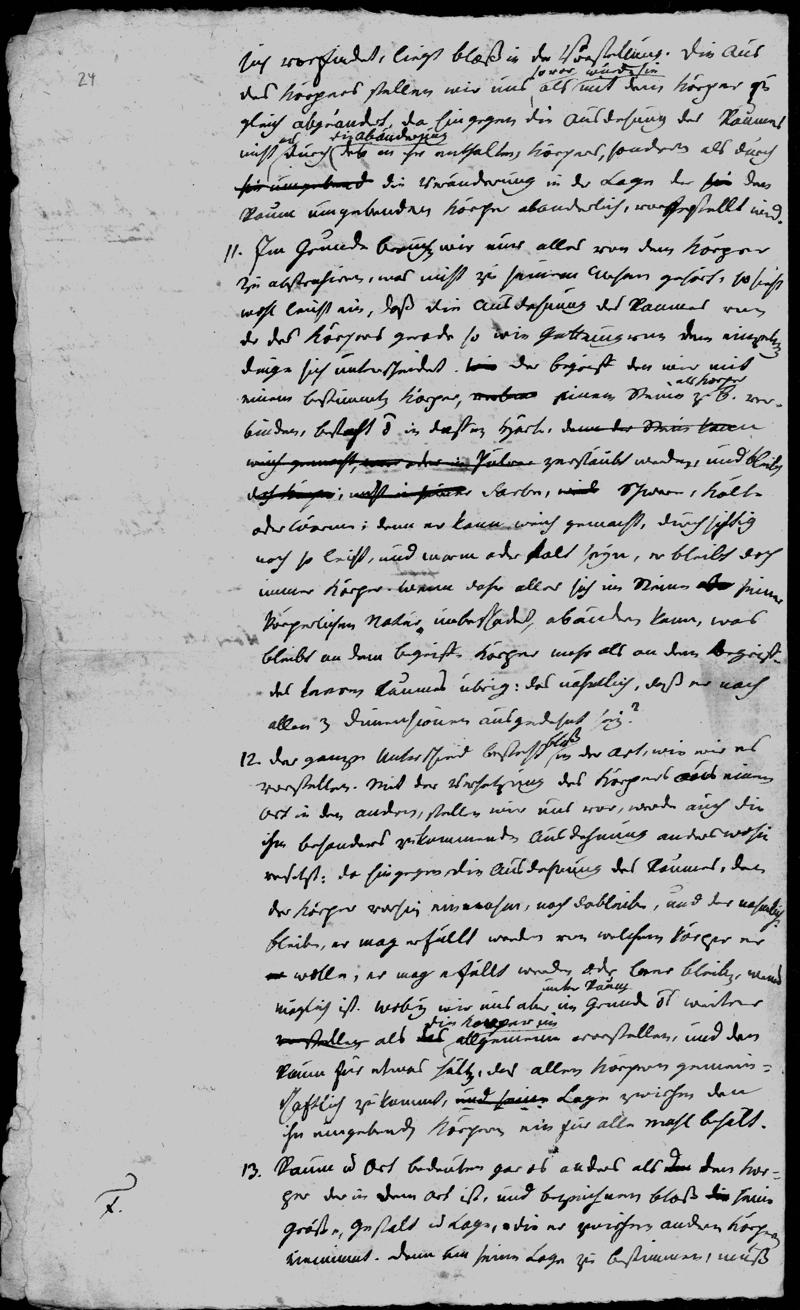 24
sich vorfindet, liegt bloß in der Vorstellung. Die Aus
des Körpers stellen wir uns so vor, würde sie als mit dem Körper zu
gleich abgeändert, da hingegen die Ausdehnung des Raumes
nicht durch die Abänderung des in ihr enthaltenen Körpers, sondern als durch
die Veränderung in der Lage der den
Raum umgebenden Körper abänderlich, vorgestellt wird.
11. Im Grunde wir nur alles von dem Körper
zu abstrahiren, was nicht zu seinem Wesen gehört, so sieht
wohl leicht ein, daß die Ausdehnung des Raumes von
der des Körpers gerade so wie Gattung von dem einzeln
Dinge sich unterscheidet. der Begriff den wir mit
einem bestimmten Körper, einem Stein als Körper z. B. ver-
binden, besteht in dessen Härte, denn der Stein kann
weich gemacht, oder in Pulver zerstäubt werden, und bleibt
doch Körper; nicht in seiner Farbe, Schwere, Kälte
oder Wärme; denn er kann weich gemacht, durchsichtig
noch so leicht, und warm oder kalt seyn, er bleibt doch
immer Körper. Wenn daher alles sich im Steine seiner
körperlichen Natur unbeschadet, abändern kann, was
bleibt an dem Begriff Körper mehr als an dem Begriff
des leeren Raumes übrig: das nähmlich, daß er nach
allen 3 Dimensionen ausgedehnt sey?
12. Der ganze Unterschied besteht bloß in der Art, wie wir es
vorstellen. Mit der Versetzung des Körpers aus einem
Ort in den andern, stellen wir uns vor, werde auch die
ihm besonders zukommende Ausdehnung anders wohin
versetzt: da hingegen die Ausdehnung des Raumes, den
der Körper vorhin einnahm, noch dableibe, und der nähmliche
bleibe, er mag erfüllt werden von welchem Körper er
wolle, er mag erfüllt werden oder leer bleiben, wenns
möglich ist. Wobey wir uns aber unter Raum im Grunde weiter
vorstellen als die Körper im allgemeinen vorstellen, und den
Raum für etwas halten, das allen Körpern gemein-
schaftlich zukommt, und seine Lage zwischen den
ihn umgebenden Körpern ein für alle mahl behält.
13. Raum u Ort bedeuten gar anders als den Kör-
per der in dem Ort ist, und bezeichnen bloß seine
Größe, Gestalt u Lage, die er zwischen andern Körpern
einnimmt. Denn um seine Lage zu bestimmen, muß
F.